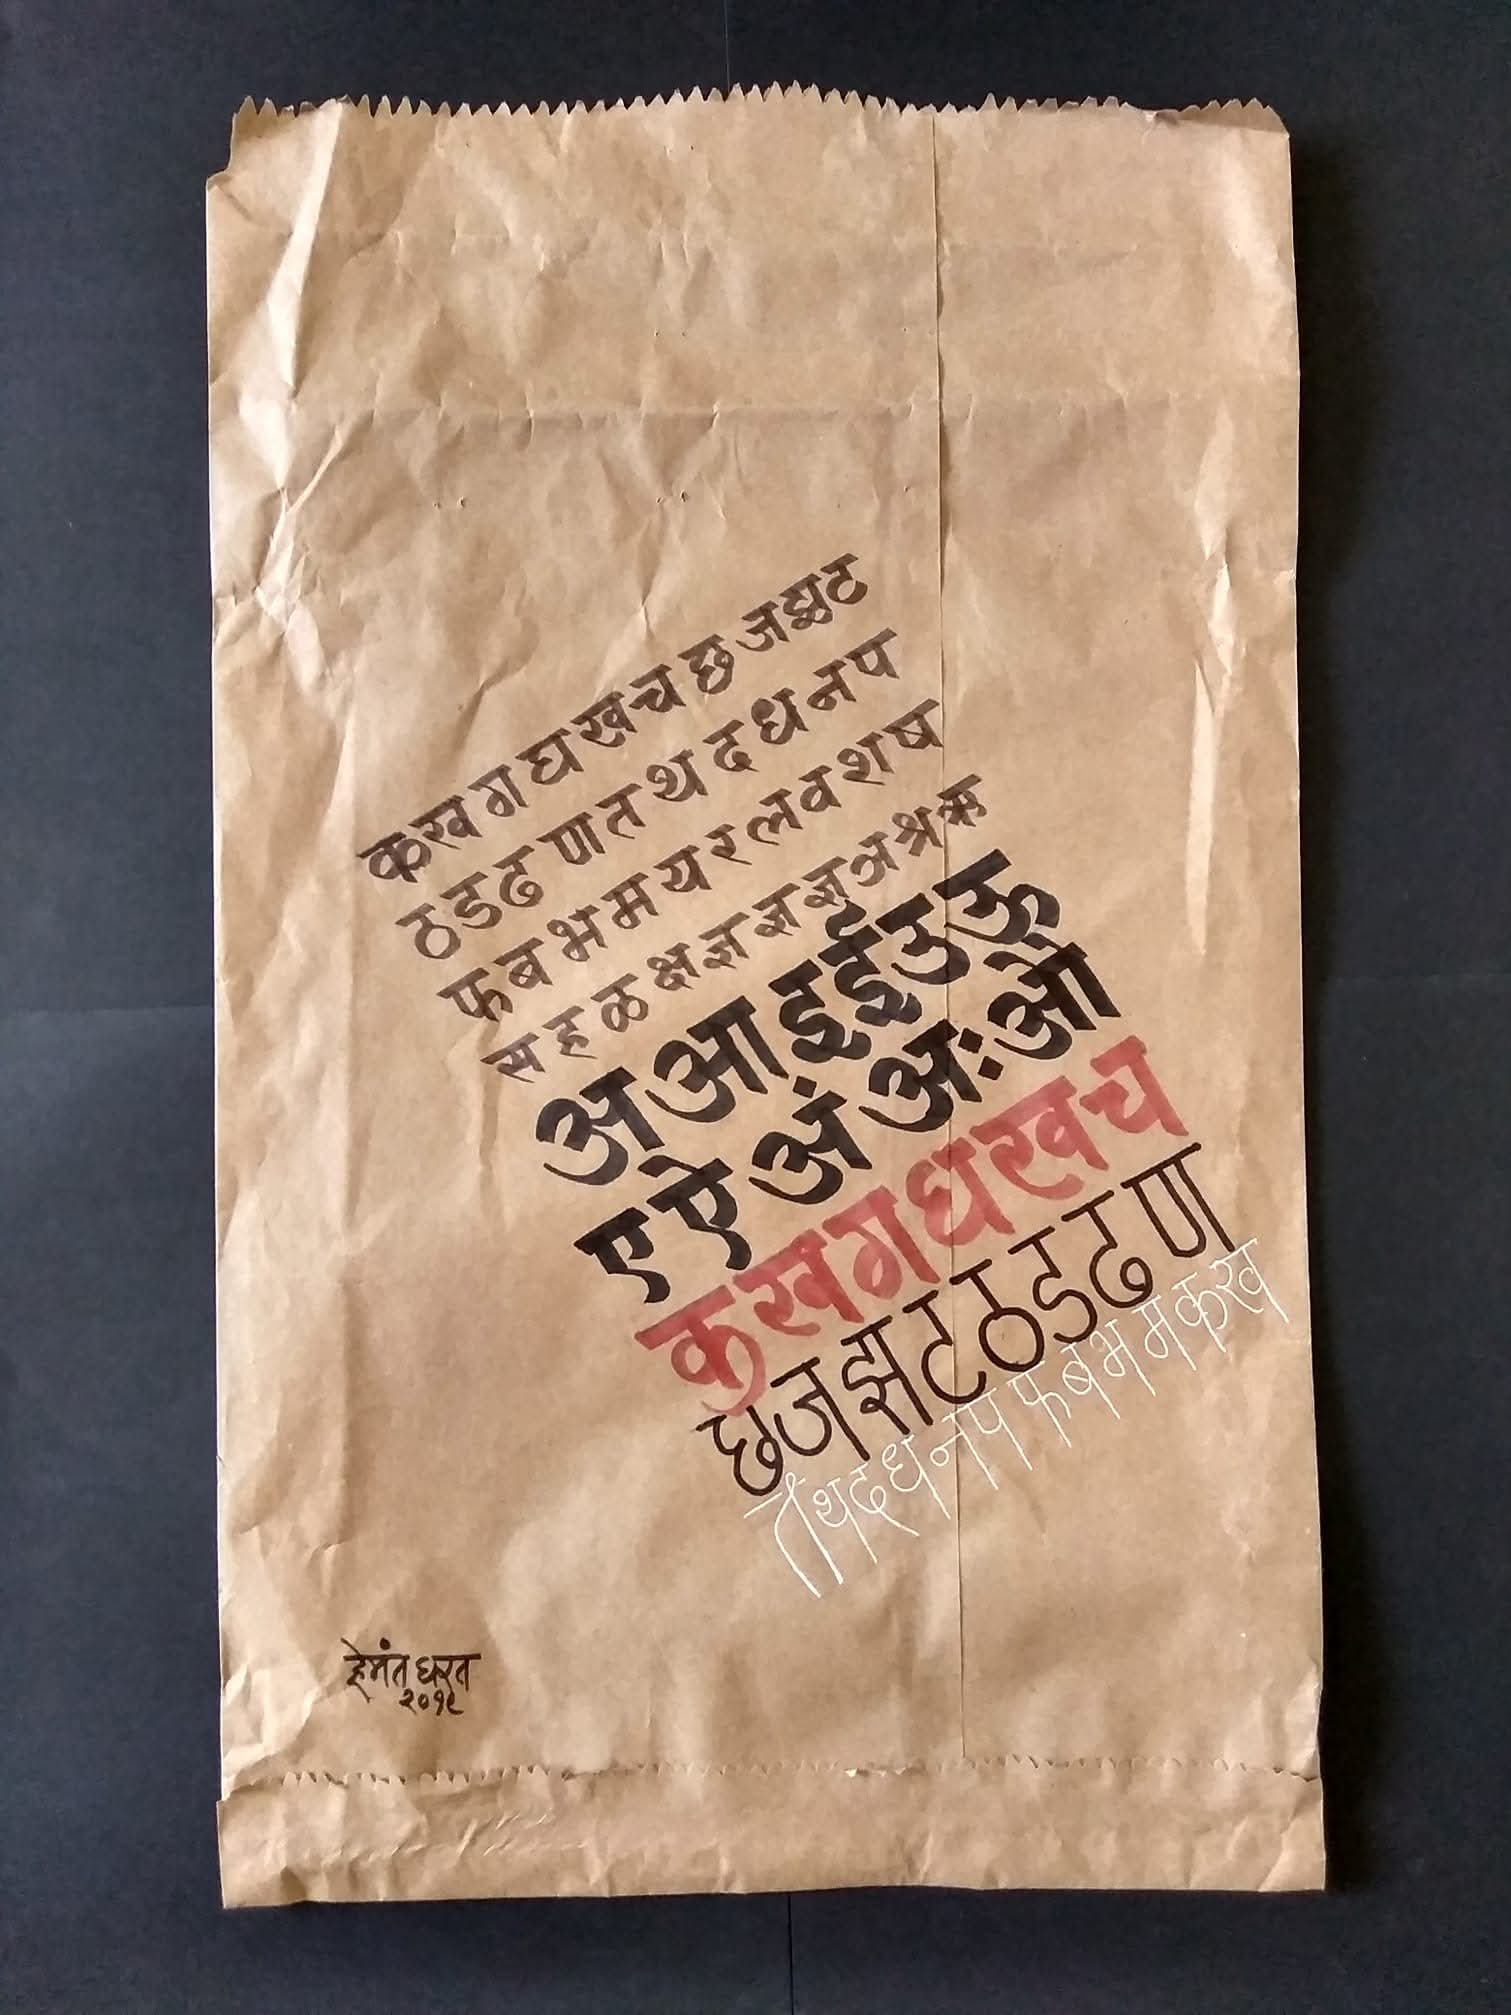 क ख ग घ ख च छ ज झ ट
ठ ड ढ ण त थ द ध न प
फ ब भ म य र ल व श ष
स ह ळ क्ष ज्ञ ज्ञ ज्ञ ञ श्र ऋ
अ आ इ ई उ ऊ
ए ऐ अं अः ओ
क ख ग ध ख च
छ ज झ ट ठ ड ढ ण
त थ द ध न प फ ब भ म क ख
हेमंत घरत
२०१९